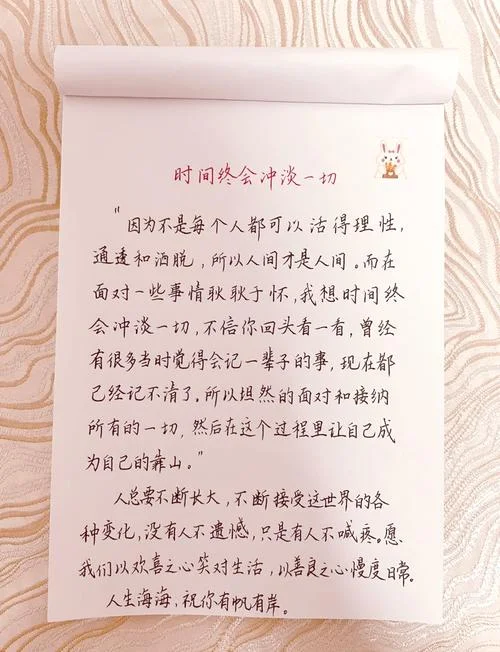 时间终会冲淡一切
“因为不是每个人都可以活得理性,
通透和洒脱,所以人间才是人间。而在
面对一些事情耿耿于怀,我想时间终
会冲淡一切,不信你回头看一看,曾经
有很多当时觉得会记一辈子的事,现在都
已经记不清了。所以坦然的面对和接纳
所有的一切,然后在这个过程里让自己成
为自己的靠山。”
人总要不断长大,不断接受这世界的各
种变化,没有人不遗憾,只是有人不喊疼。愿、
我们以欢喜之心笑对生活,以善良之心慢度日常。
人生海海,祝你有帆有岸。